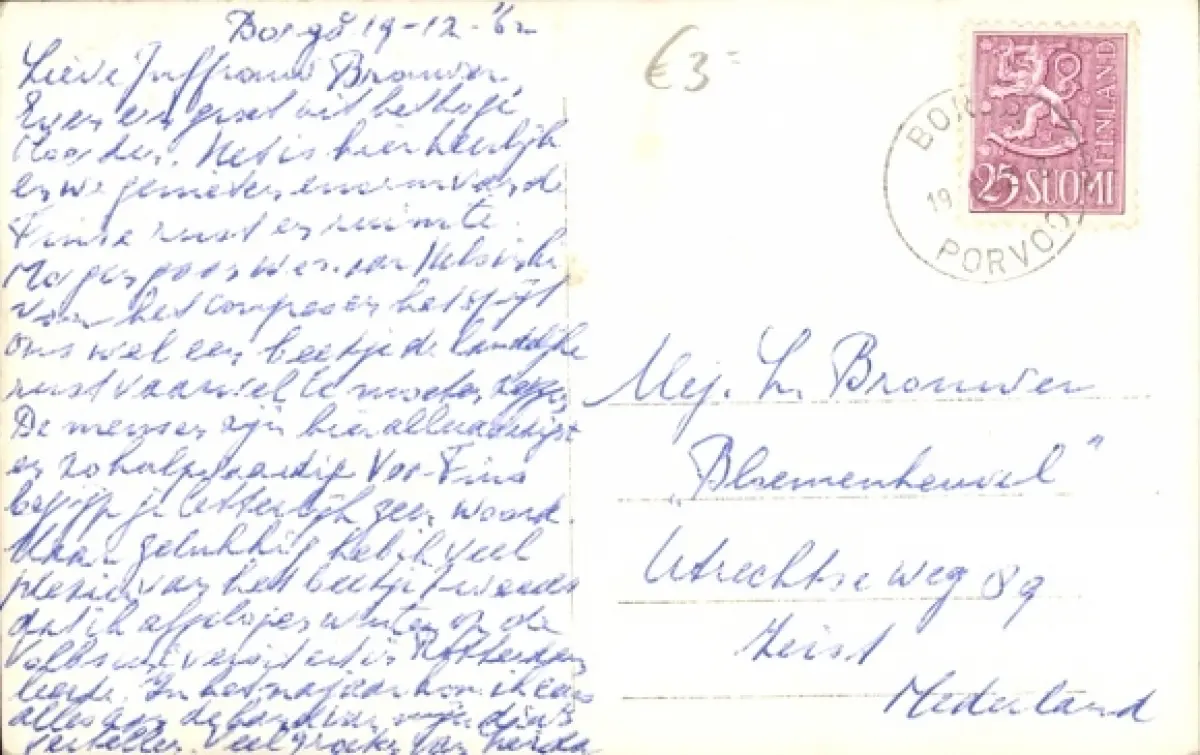 Borgå 19-12-'62
Lieve Juffrouw Brouwer.
Even een groet uit het hoge
Noorden. Het is hier heerlijk
en we genieten enorm van de
Finse rust en ruimte.
Morgen gaan we naar Helsinki
voor het congres en het spijt
ons wel een beetje de landelijke
rust vaarwel te moeten zeggen
De mensen zijn hier alleraardigst
en zo hulpvaardig Van Fins
begrijp je letterlijk geen woord.
Maar gelukkig heb ik veel
plezier van het beetje Zweeds
dat ik afgelopen winter op de
Volksuniversiteit in Rotterdam
leerde. In het najaar kom ik eens
alles aan de hand van mijn dia's
vertellen. Veel groeten van
€3-
BORGÅ
19
PORVOO
25 SUOMI
FINLAND
Mej. L. Brouwer
„Bloemenheuvel"
Utrechtse weg 89
Zeist
Nederland